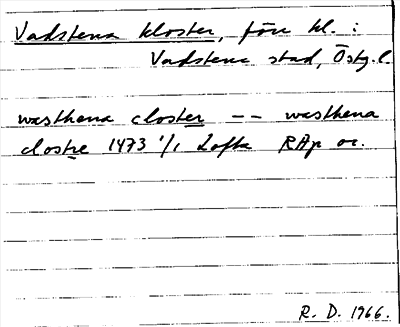 Vadstena kloster, förr kl. i
Vadstena stad, Östg. l.
wasthena closter -- wasthena
clostre 1473 1/1 Lofta RAp or.
R. D. 1966.